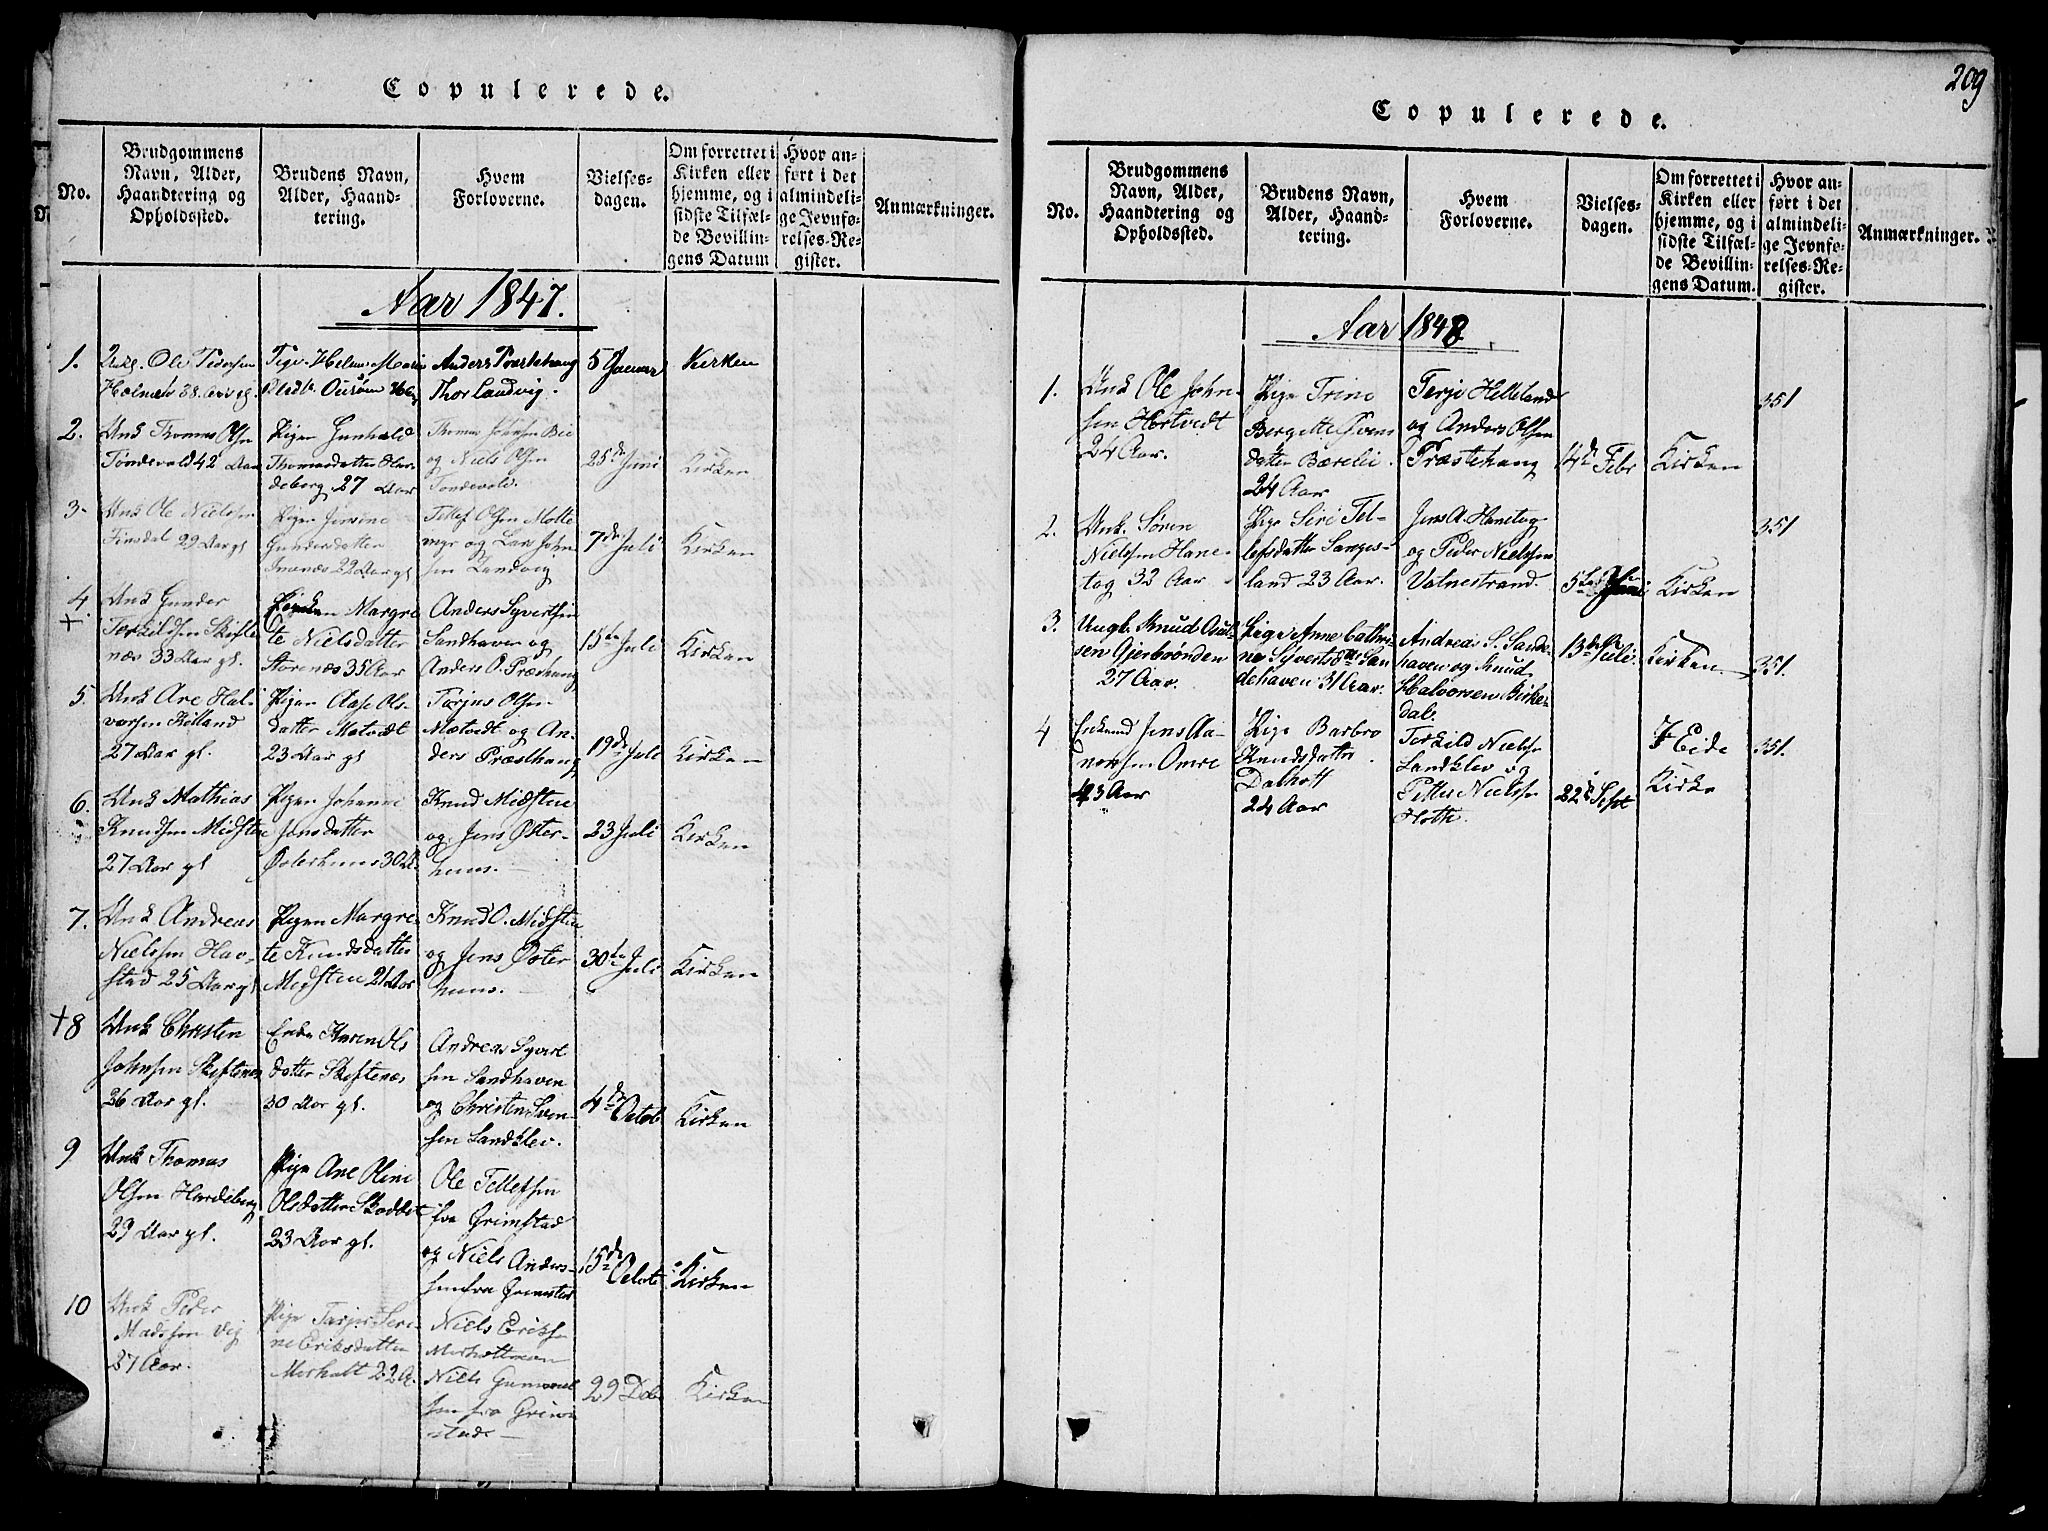 Copulerede.
No.
Brudgommens
Navn, Alder,
Haandtering og
Opholdssted.
Brudens Navn,
Alder, Haand-
tering.
Hvem
Forloverne.
Vielses-
dagen.
Om forrettet i
Kirken eller
hjemme, og i
sidste Tilfæl-
de Bevillin-
gens Datum
Hvor an-
ført i det
almindeli-
ge Jevnfø-
relses-Re-
gister.
Anmærkninger.
Aar 1847.
1.
Ole Pedersen
Holmen 38 Aar gl.
Pige Helene Marie
Anders Præstehaug
Thor Landvig.
5 Januar
Kirken
2.
Unk Thomas Olsen
Tondevold 42 Aar
Pigen Gunhild
Thomasdatter Har-
deberg 27 Aar
Thomas Johnsen Bie
og Niels Olsen
Tondevold.
25de Juni
Kirken
3.
Unk Ole Nielsen
29 Aar gl
Pigen Jensine
Gundersdatter
22 Aar gl
Tellef Olsen Molte
myr og Lars John
sen Landvig
7de Juli
Kirken
4.
+
Unk Gunder
Terkildsen Skifte
næs 33 Aar gl.
Margre
te Nielsdatter
Storenæs 35 Aar
Anders Syvertsen
Sandhaven og
Anders O. Præsthaug
15de Juli
Kirken
5.
Unk Are Hal-
vorsen
27 Aar gl.
Pigen Aase Ols-
datter Møtvedt
23 Aar gl
Torjus Olsen
Møtvedt og An-
ders Præsthaug
19de Juli
Kirken
6.
Unk Mathias
Knudsen Midsten
27 Aar gl
Pigen Johanne
Jensdatter
Østerhuus 30 A.
Knud Midsten
og Jens Øster-
huus.
23 Juli
Kirken
7.
Unk Andreas
Nielssen Hav-
stad 25 Aar gl
Pigen Margre
te Knudsdatter
Midsten 21 Aar
Knud O. Midsten
og Jens Øster
huus.
30te Juli
Kirken
+8
Unk Christen
Johnsen Skiftenes
26 Aar gl.
Enke Karen Ols
datter Skiftenæs
30 Aar gl.
Andreas Syvert
sen Sandhaven
og Christen Sven-
sen Landklev.
4de Octob
Kirken
9
Unk Thomas
Olsen Hardeberg
29 Aar gl.
Pige Ane Oline
Olsdatter
23 Aar gl.
Ole Tellefsen
fra Grimstad
og Niels Anders-
sen fra Grimstad
15de Octob
Kirken
10
Unk Peder
Madssen Vig
27 Aar.
Pige Seri-
ne Eriksdatter
Morholt 22 A.
Niels Eriksen
Niels
sen fra Grim
stad
29 Dec
Kirken
209
Copulerede.
No.
Brudgommens
Navn, Alder,
Haandtering og
Opholdssted.
Brudens Navn,
Alder, Haand-
tering.
Hvem
Forloverne.
Vielses-
dagen.
Om forrettet i
Kirken eller
hjemme, og i
sidste Tilfæl-
de Bevillin-
gens Datum.
Hvor an-
ført i det
almindeli-
ge Jevnfø-
relses-Re-
gister.
Anmærkninger.
Aar 1848.
1.
Unk Ole John-
sen Hortvedt
24 Aar.
Pige Trine
Bergitte Øvens
datter Bærelie.
24 Aar
Terje Helleland
og Anders Olsen
Præstehaug
14de Febr
Kirken
351
2.
Unk. Søren
Nielssen Hane-
tog 32 Aar
Pige Siri Tel-
lefsdatter Sanges-
land 23 Aar.
Jens A. Hanetog
og Peder Nielssen
Valnestrand.
5te Juni
Kirken
351
3.
Ungk. Knud Osul-
sen Gjerbrønden
27 Aar.
Pige Anne Cathri-
ne Syverts Dtr San-
dehaven 31 Aar.
Andreas S. Sande-
haven og Knud
Halvorsen Birke-
dal.
13de Juli.
Kirken
351.
4
Enkemd Jens Aa-
nonsen Omre
43 Aar
Pige Barbro
Knudsdatter
Dalholt
24 Aar
Terkild Nielsen
Landklev og
Petter Nielsen
Holte.
22de Sept
I Eide
Kirke
351.